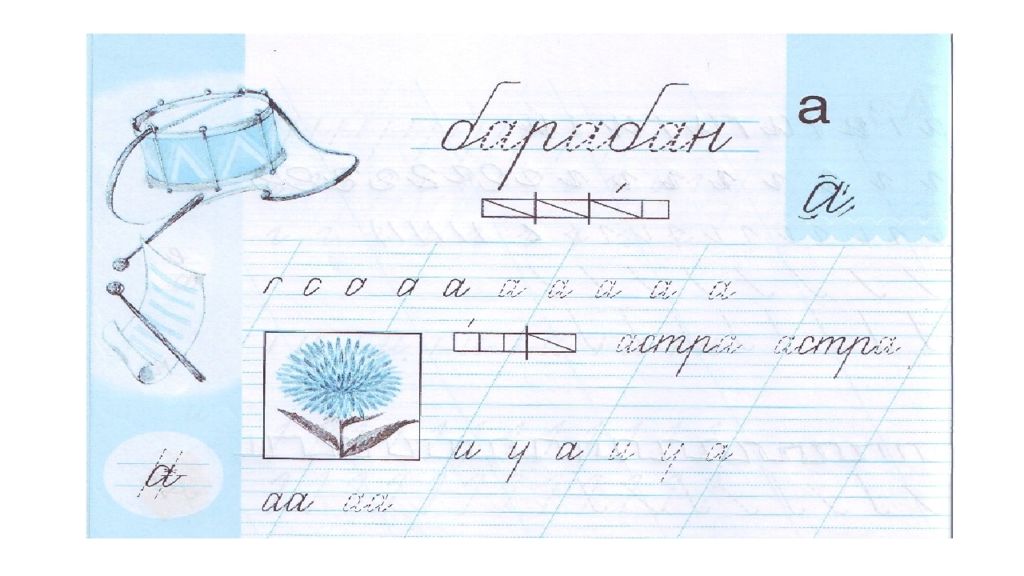 барабан
а
а
г с а а а а а а а а
астра астра
и у а и у а
а
аа аа